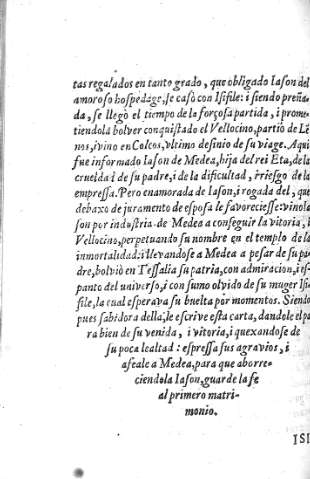 tas regalados en tanto grado, que obligado Iason del
amoroso hospedage, se casò con Isifile: i siendo preña-
da, se llegò el tiempo de la forçosa partida, i prome-
tiendola bolver conquistado el Vellocino, partio de Lē
nos, i vino en Colcos, vltimo desinio de su viage. Aqui
fue informado Iason de Medea, hija del rei Eta, de la
crueldad de su padre, i de la dificultad, i riesgo de la
empressa. Pero enamorada de Iason, i rogada del, que
debaxo de juramento de esposa le favoreciesse: vino Ia
son por industria de Medea a conseguir la vitoria, i
Vellocino, perpetuando su nombre en el templo de la
inmortalidad: i llevandose a Medea a pesar de su pa-
dre, bolviò en Tessalia su patria, con admiracion, i es-
panto del universo, i con sumo olvido de su muger Isi
file, la cual esperava su buelta por momentos. Siendo
pues sabidora della, le escrive esta carta, dandole el pa
ra bien de su venida, i vitoria, i quexandose de
su poca lealtad: espressa sus agravios, i
afeale a Medea, para que aborre-
ciendola Iason, guarde la fe
al primero matri-
monio.
ISI